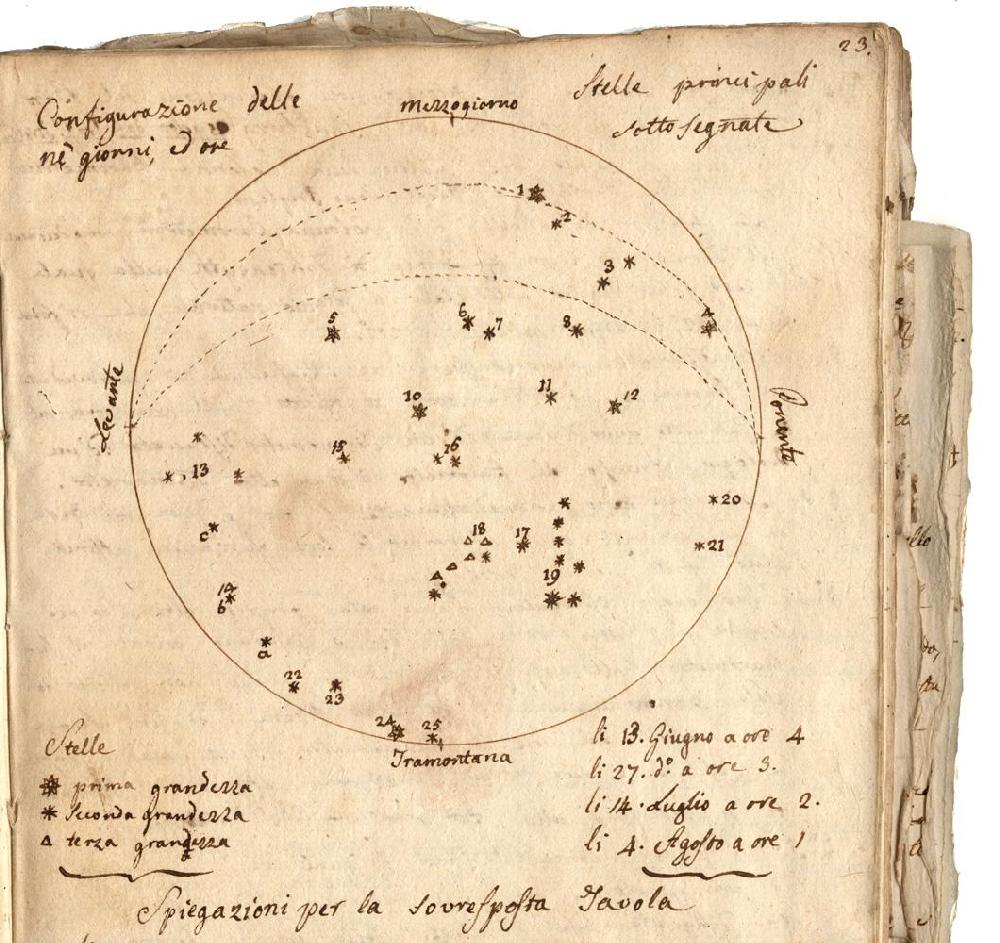 23.
Configurazione delle
nè giorni, ed ore
mezzogiorno
Stelle principali
sotto segnate
1
2
3
4
5
6
7
8
10
11
12
Levante
Ponente
15
16
13
20
c
18
17
21
19
14
b
a
22
23
24
25
Tramontana
Stelle
prima grandezza
seconda grandezza
terza grandezza
li 13. Giugno a ore 4
li 27. do. a ore 3.
li 14. Luglio a ore 2.
li 4. Agosto a ore 1
Spiegazioni per la sovresposta Tavola